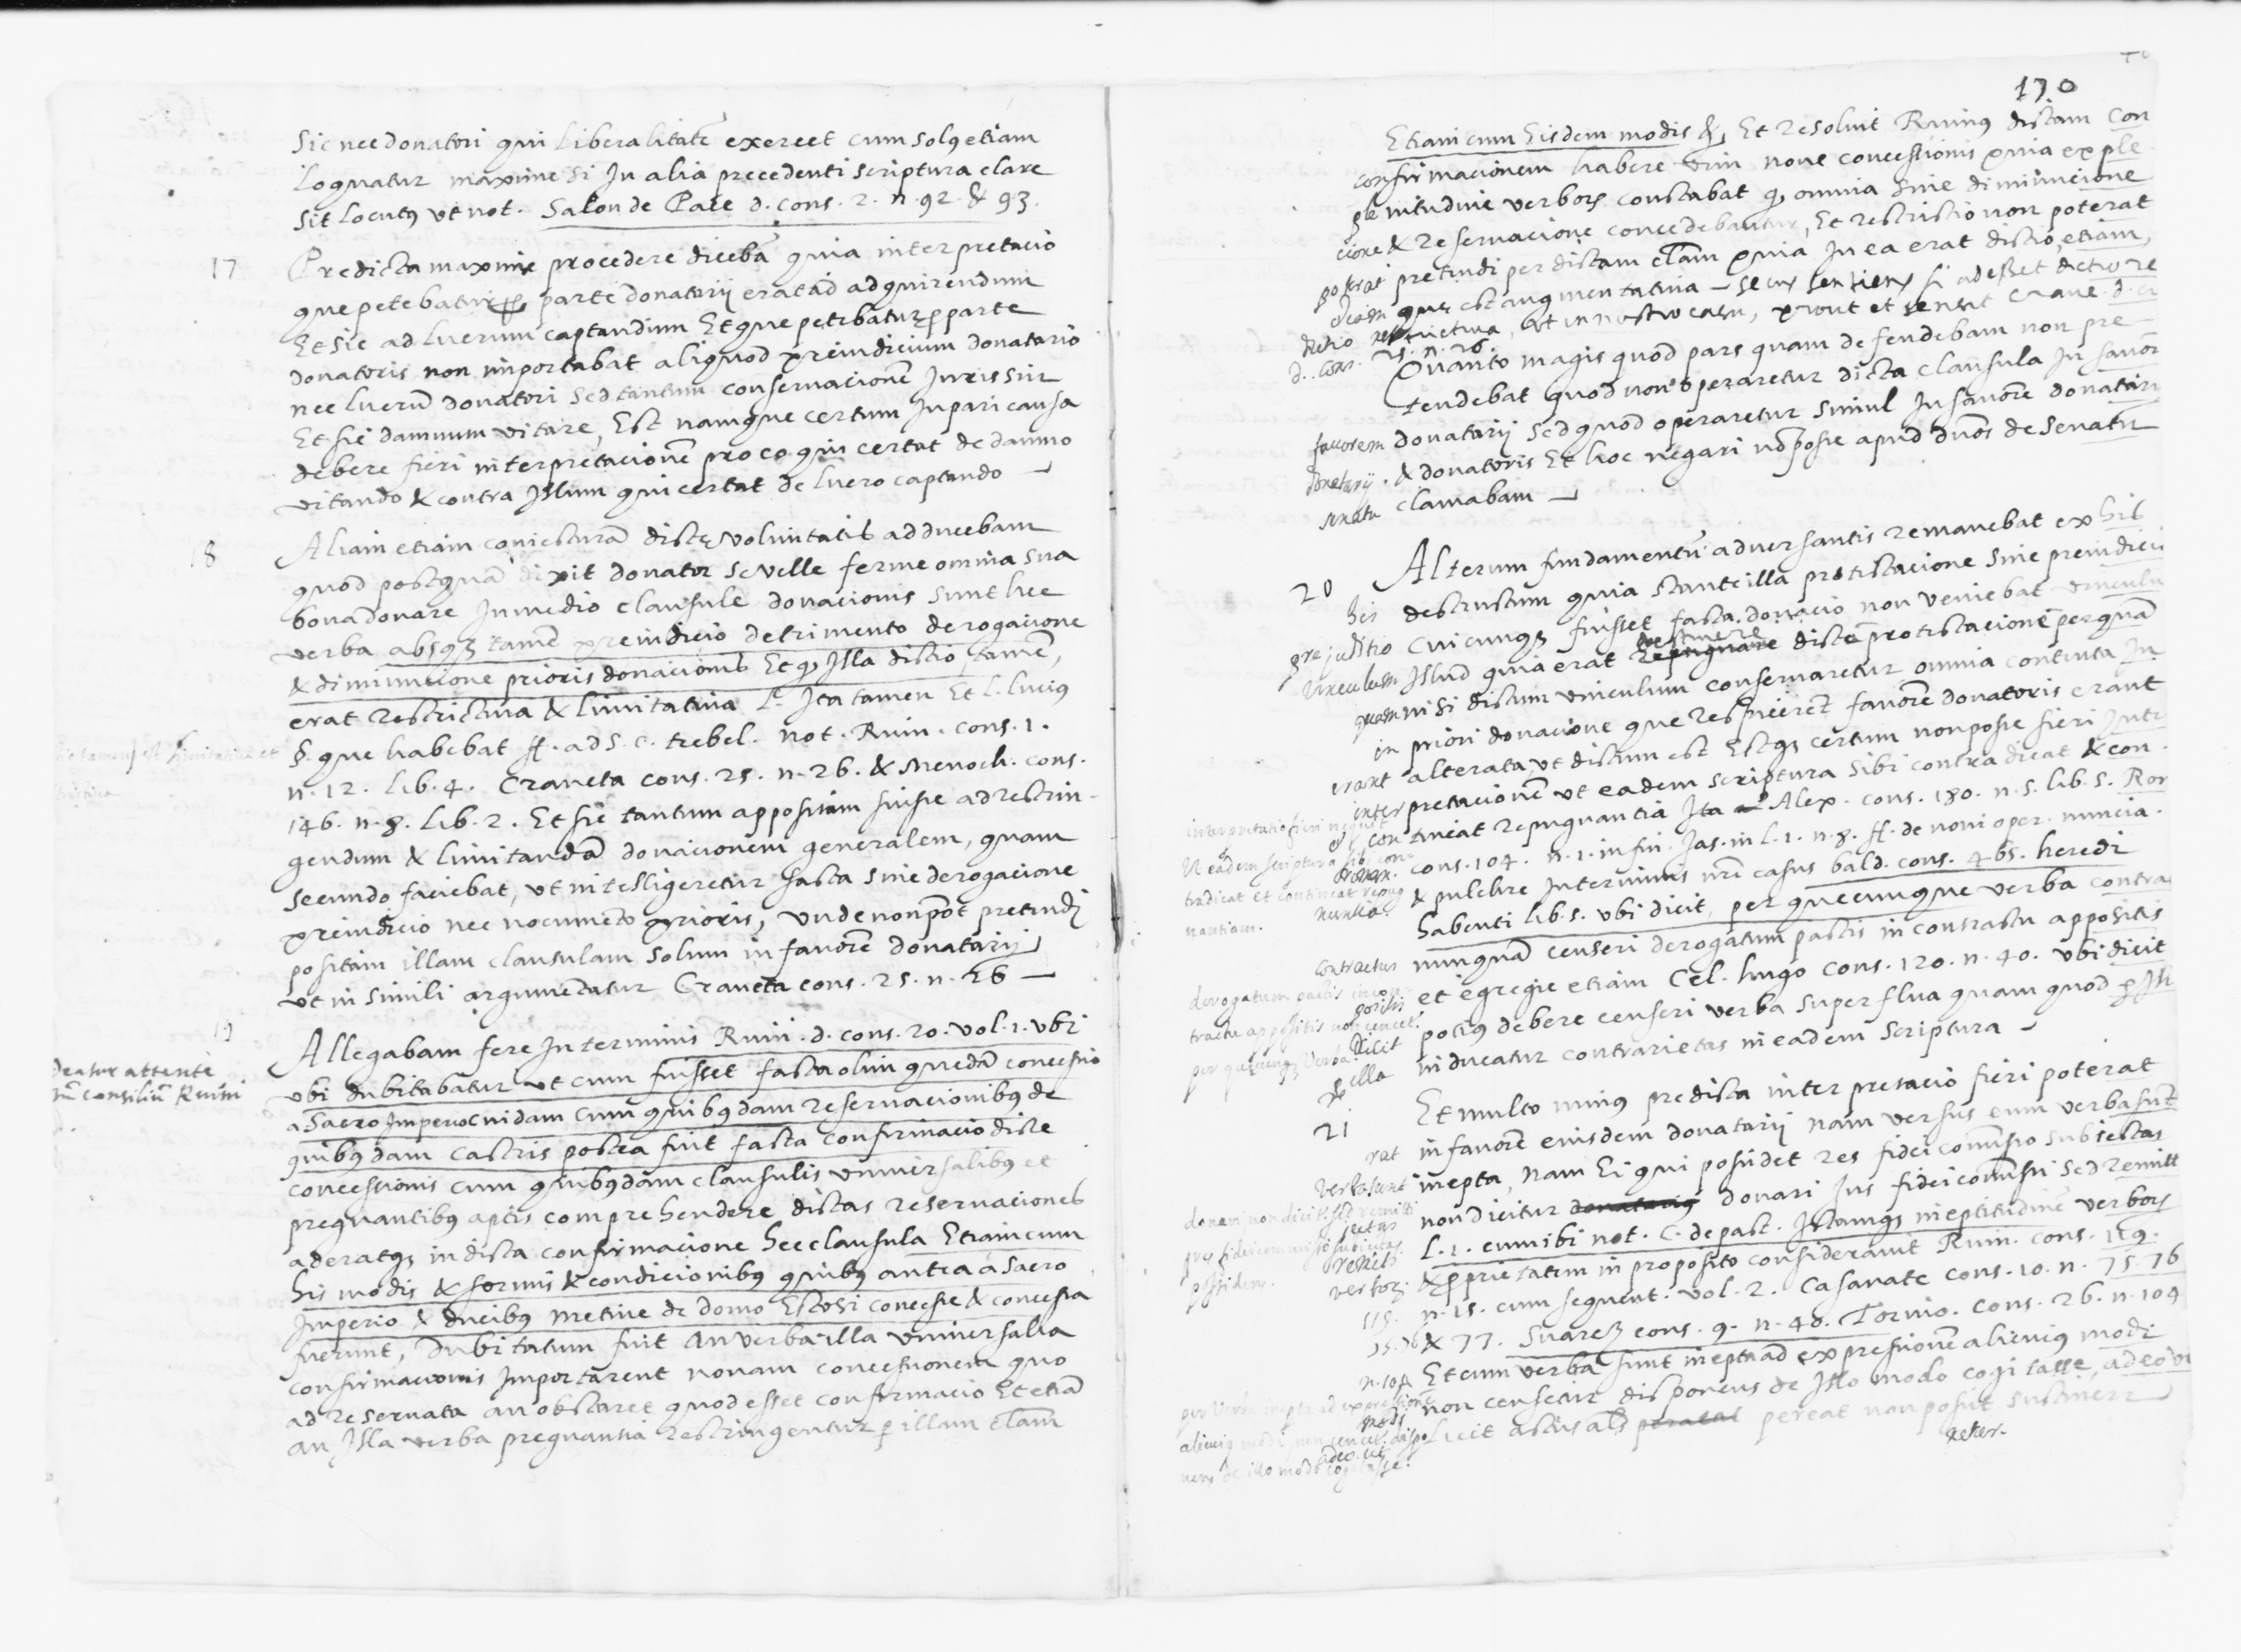 Sic nec donatori qui liberalitatẽ exercet cum solꝰ etiam
loquatur maxime si In alia precedenti scriptura clare
sit locutꝰ ut not. Salon de Pace d. cons. 2. n. 92. & 93.
17
Predicta maxime procedere dicebã quia interpretacio
que petebatur parte donatarij erat ad adquirendum
Et sic ad lucrum captandum Et que petebatur ꝑ parte
donatoris non importabat aliquod preiudicium donatario
nec lucrũ donatori sed tantum conservacionẽ Juris sui
Et sic damnum vitare, Est namque certum In pari causa
debere fieri interpretacionẽ pro eo qui certat de damno
vitando & contra Illum qui certat de lucro captando
18
Aliam etiam coniecturã dictę voluntatis adducebam
quod postquã dixit donator se velle ferme omnia sua
bona donare In medio clausule donacionis sunt hec
verba absqꝫ tamẽ preiudicio detrimento derogacione
& diminucione prioris donacionis Et qꝫ Illa dictio, tamẽ,
erat restrictiva & limitativa L. Ita tamen Et L. Lucius
§. que habebat ff. ad S. C. trebel. not. Ruin. cons. 1.
n. 12. lib. 4. Craveta cons. 25. n. 26. & Menoch. cons.
146. n. 8. lib. 2. Et sic tantum appositam fuisse ad restrin-
gendum & limitandã donacionem generalem, quam
secundo faciebat, ut intelligeretur facta sine derogacione
preiudicio nec nocumẽto prioris, unde non põt pretendi
positam illam clausulam solum in favorẽ donatarij
ut in simili argumẽtatur Craveta cons. 25. n. 26
19
deatur attente
consiliũ Ruini
Allegabam fere In terminis Ruin. d. cons. 20. vol. 1. ubi
ubi dubitabatur ut cum fuisset facta olim quedã concessio
a Sacro Imperio cuidam cum quibꝰdam reservacionibꝰ de
quibꝰdam castris postea fuit facta confirmacio dicte
concessionis cum quibꝰdam clausulis universalibꝰ et
pregnantibꝰ aptis comprehendere dictas reservaciones
aderatqꝫ in dicta confirmacione hec clausula Etiam cum
his modis & formis & condicionibꝰ quibꝰ antea a Sacro
Imperio & ducibus de domo concesse & concessa
fuerunt, Dubitatum fuit an verba illa universalia
confirmacionis Importarent novam concessionem quo
ad reservata an obstaret quod esset confirmacio Et etiã
an Illa verba pregnantia restringentur ꝑ illam clam
170
Etiam cum Eisdem modis &, Et resolvit Ruinꝰ dictam con
confirmacionem habere vim nove concessionis quia ex ple
nitudine verborꝫ constabat qꝫ omnia sine diminucione
cione & reservacione concedebantur, Et restrictio non poterat
poterat pretendi per dictam clam quia In ea erat dictio, etiam,
etiam que est augmentativa secus si adesset dictio re
dictio restrictiva, ut in nostro casu, prout et sensit Crave. d.
d. cons. 25. n. 26.
Quanto magis quod pars quam defendebam non pre-
tendebat quod non operaretur dicta clausula In favor
favorem donatarij sed quod operaretur simul In favorẽ donatarij
donatarij. & donatoris Et hoc negari nõ posse apud dños de senatu
senatu clamabam
20
Alterum fundamentũ adversantis remanebat ex his
his destructum quia stante illa protestacione sine preiudicio
prejuditio cuicumqꝫ fuisset facta donacio non veniebat vinculu
vinculum Illud quia erat dicta protestacionẽ perquã
quam nisi dictum vinculum conservaretur omnia contenta In
in priori donacione que respicerẽt favorẽ donatoris erant
erant alterata, ut dictum est Estqꝫ certum non posse fieri Intr
interpretacionẽ ut eadem scriptura sibi contradicat & con
contineat repugnantiã Ita Alex. cons. 180. n. 5. lib. 5. Rom
cons. 104. n. 1. in fin. Jas. in L. 1. n. 8. ff. de novi oper. nuncia.
nuntia. & pulchre In terminis nri casus bald. cons. 465. heredi
habenti lib. 5. ubi dicit, per quecumque verba contra
contractus nunquã censeri derogatum pactis in contractu appositis
et egregie etiam Cel. hugo cons. 120. n. 40. ubi dicit
dicit potiꝰ debere censeri verba superflua quam quod ꝑ Ill
illa inducatur contrarietas in eadem scriptura
interpretatio fieri nequit
ut eadem scriptura sibi con-
tradicat et contineat repug
nantiam.
derogatum pactis in con-
tractu appositis non censet.
per quecumqꝫ verba
21
Et multo minꝰ predicta interpretacio fieri poterat
rat in favorẽ eiusdem donatarij nam versus eum verba sunt
verba sunt inepta, nam Ei qui possidet res fideicomisso subiectas
jectas non dicitur donari Ius fideicomissi sed remitt
L. 1. cum ibi not. C. de pact. Istamqꝫ ineptitudinẽ verborꝫ
verborꝫ & proprietatem in proposito consideravit Ruin. cons. 119.
119. n. 15. cum sequent. vol. 2. Casanate cons. 10. n. 75. 76
75. 76 & 77. Suarez cons. 9. n. 48. Tornio. cons. 26. n. 104
n. 104 Et cum verba sunt inepta ad expressionẽ alicuiꝰ modi
modi non censetur disponens de Isto modo cogitasse, adeo ut
adeo ut licit actus als pereat non possit sustineri
donari non dicit. sed remitti
possidens.
per verba inepta ad expressionẽ
alicuiꝰ modi non censet. dispo
nens de illo modo cogitasse.